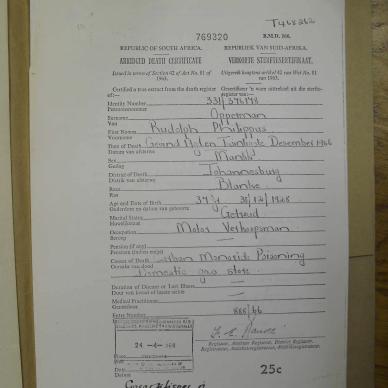 T468262
769320
B.M.D. 266.
REPUBLIC OF SOUTH AFRICA. REPUBLIEK VAN SUID-AFRIKA.
ABRIDGED DEATH CERTIFICATE VERKORTE STERFTESERTIFIKAAT
Issued in terms of Section 42 of Act No. 81 of 1963. Uitgereik kragtens artikel 42 van Wet No. 81 van 1963.
Certified a true extract from the death register of:— Gesertifiseer 'n ware uittreksel uit die sterfteregister van:—
Identity Number 331/
Persoonsnommer
Surname Opperman
Van
First Names Rudolph Philippus
Voorname
Date of Death December 1966
Datum van afsterwe
Sex Manlik
Geslag
District of Death Johannesburg
Distrik van afsterwe
Race Blanke
Ras
Age and Date of Birth 37 31/12/1928
Ouderdom en datum van geboorte
Marital Status Getroud
Huwelikstaat
Occupation Motor Verkoopsman
Beroep
Pension (if any)
Pensioen (indien enige)
Causes of Death Carbon Monoxide Poisoning
Oorsake van dood Domestic gas stove
Duration of Disease or Last Illness
Duur van kwaal of laaste siekte
Medical Practitioner
Geneesheer
Entry Number 888/66
24 -4- 196
Date
Datum
Registrar, Assistant Registrar, District Registrar.
Registrateur, Assistentregistrateur, Distriksregistrateur.
25c